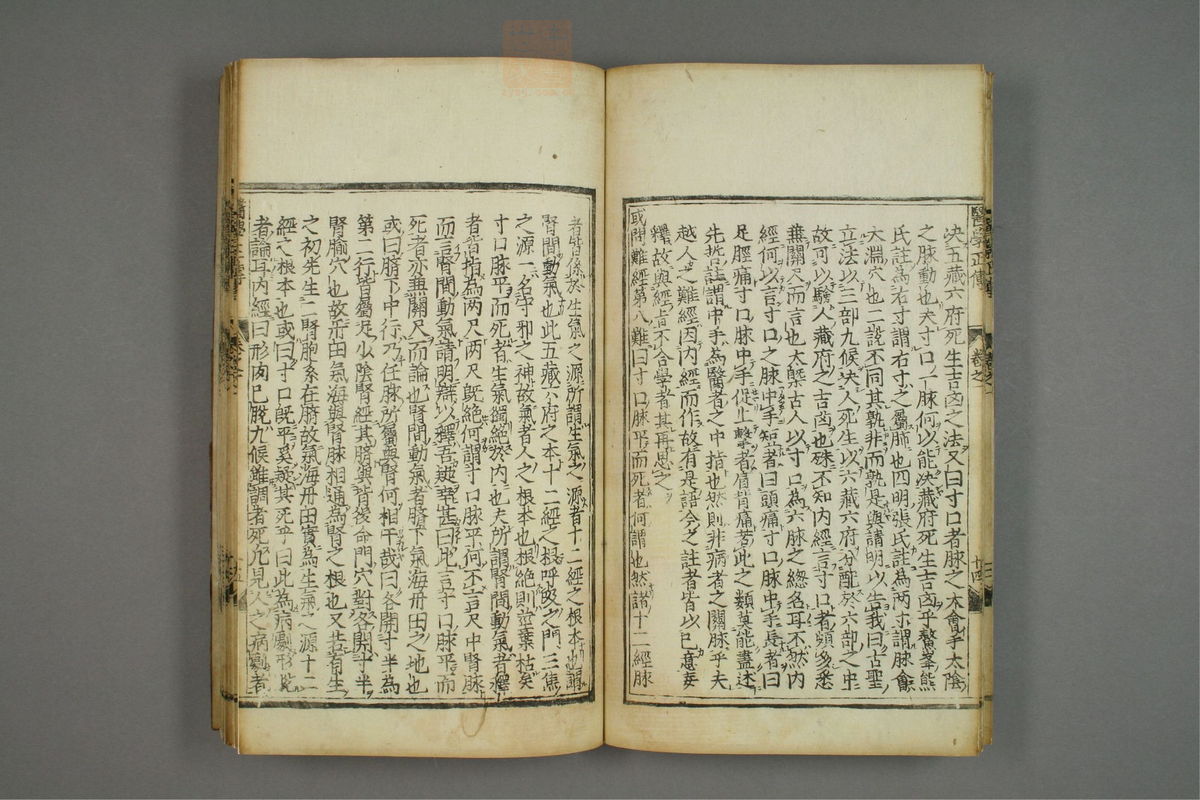 決五藏六府死生吉凶之法又曰寸口者脉之大會手太陰
之脉動也夫寸口一脉何以能決藏府死生吉凶乎鰲峯熊
氏註為右寸謂右寸之屬肺也四明張氏註為兩寸謂脉會
太淵穴也二說不同其孰非而孰是與請明以告我曰古聖
立法以三部九候決人死生以六藏六府分配於六部之中
故可以驗人藏府之吉凶也殊不知內經言寸口者頗多悉
無關尺而言也大槩古人以寸口為六脉之總名耳不然內
經何以言寸口之脉中手短者曰頭痛寸口脉中手長者曰
足脛痛寸口脉中手促上擊者肩背痛若此之類莫能盡述
先哲註謂中手為醫者之中指也然則非病者之關脉乎夫
越人之難經因內經而作故有是語今之註者皆以己意妄
釋故與經旨不合學者其再思之
或問難經第八難曰寸口脉平而死者何謂也然諸十二經脉
者皆係於生氣之源所謂生氣之源者十二經之根本也謂
腎間動氣也此五藏六府之本十二經之根呼吸之門三焦
之源一名守邪之神故氣者人之根本也根絕則莖葉枯矣
寸口脉平而死者生氣獨絕於內也夫所謂腎間動氣者
者皆指為兩尺兩尺既絕何謂寸口脉平何不言尺中腎脉
而言腎間動氣請明辯以釋吾疑幸甚曰此言寸口脉平而
死者亦無關尺而論也腎間動氣者臍下氣海丹田之地也
或曰臍下中行乃任脉所屬與腎何相干哉曰各開寸半為
第二行皆屬足少陰腎經其臍與背後命門穴對各開寸半
腎腧穴也故丹田氣海與腎脉相通為腎之根也又若有生
之初先生二腎胞系在臍故氣海丹田實為生氣之源十二
經之根本也或曰寸口既平奚疑其死乎曰此為病劇形脫
者論耳內經曰形肉已脫九候雖調者死凡見人之病劇者
醫學正傳
卷之一
十四
醫學正傳
卷之一
十五